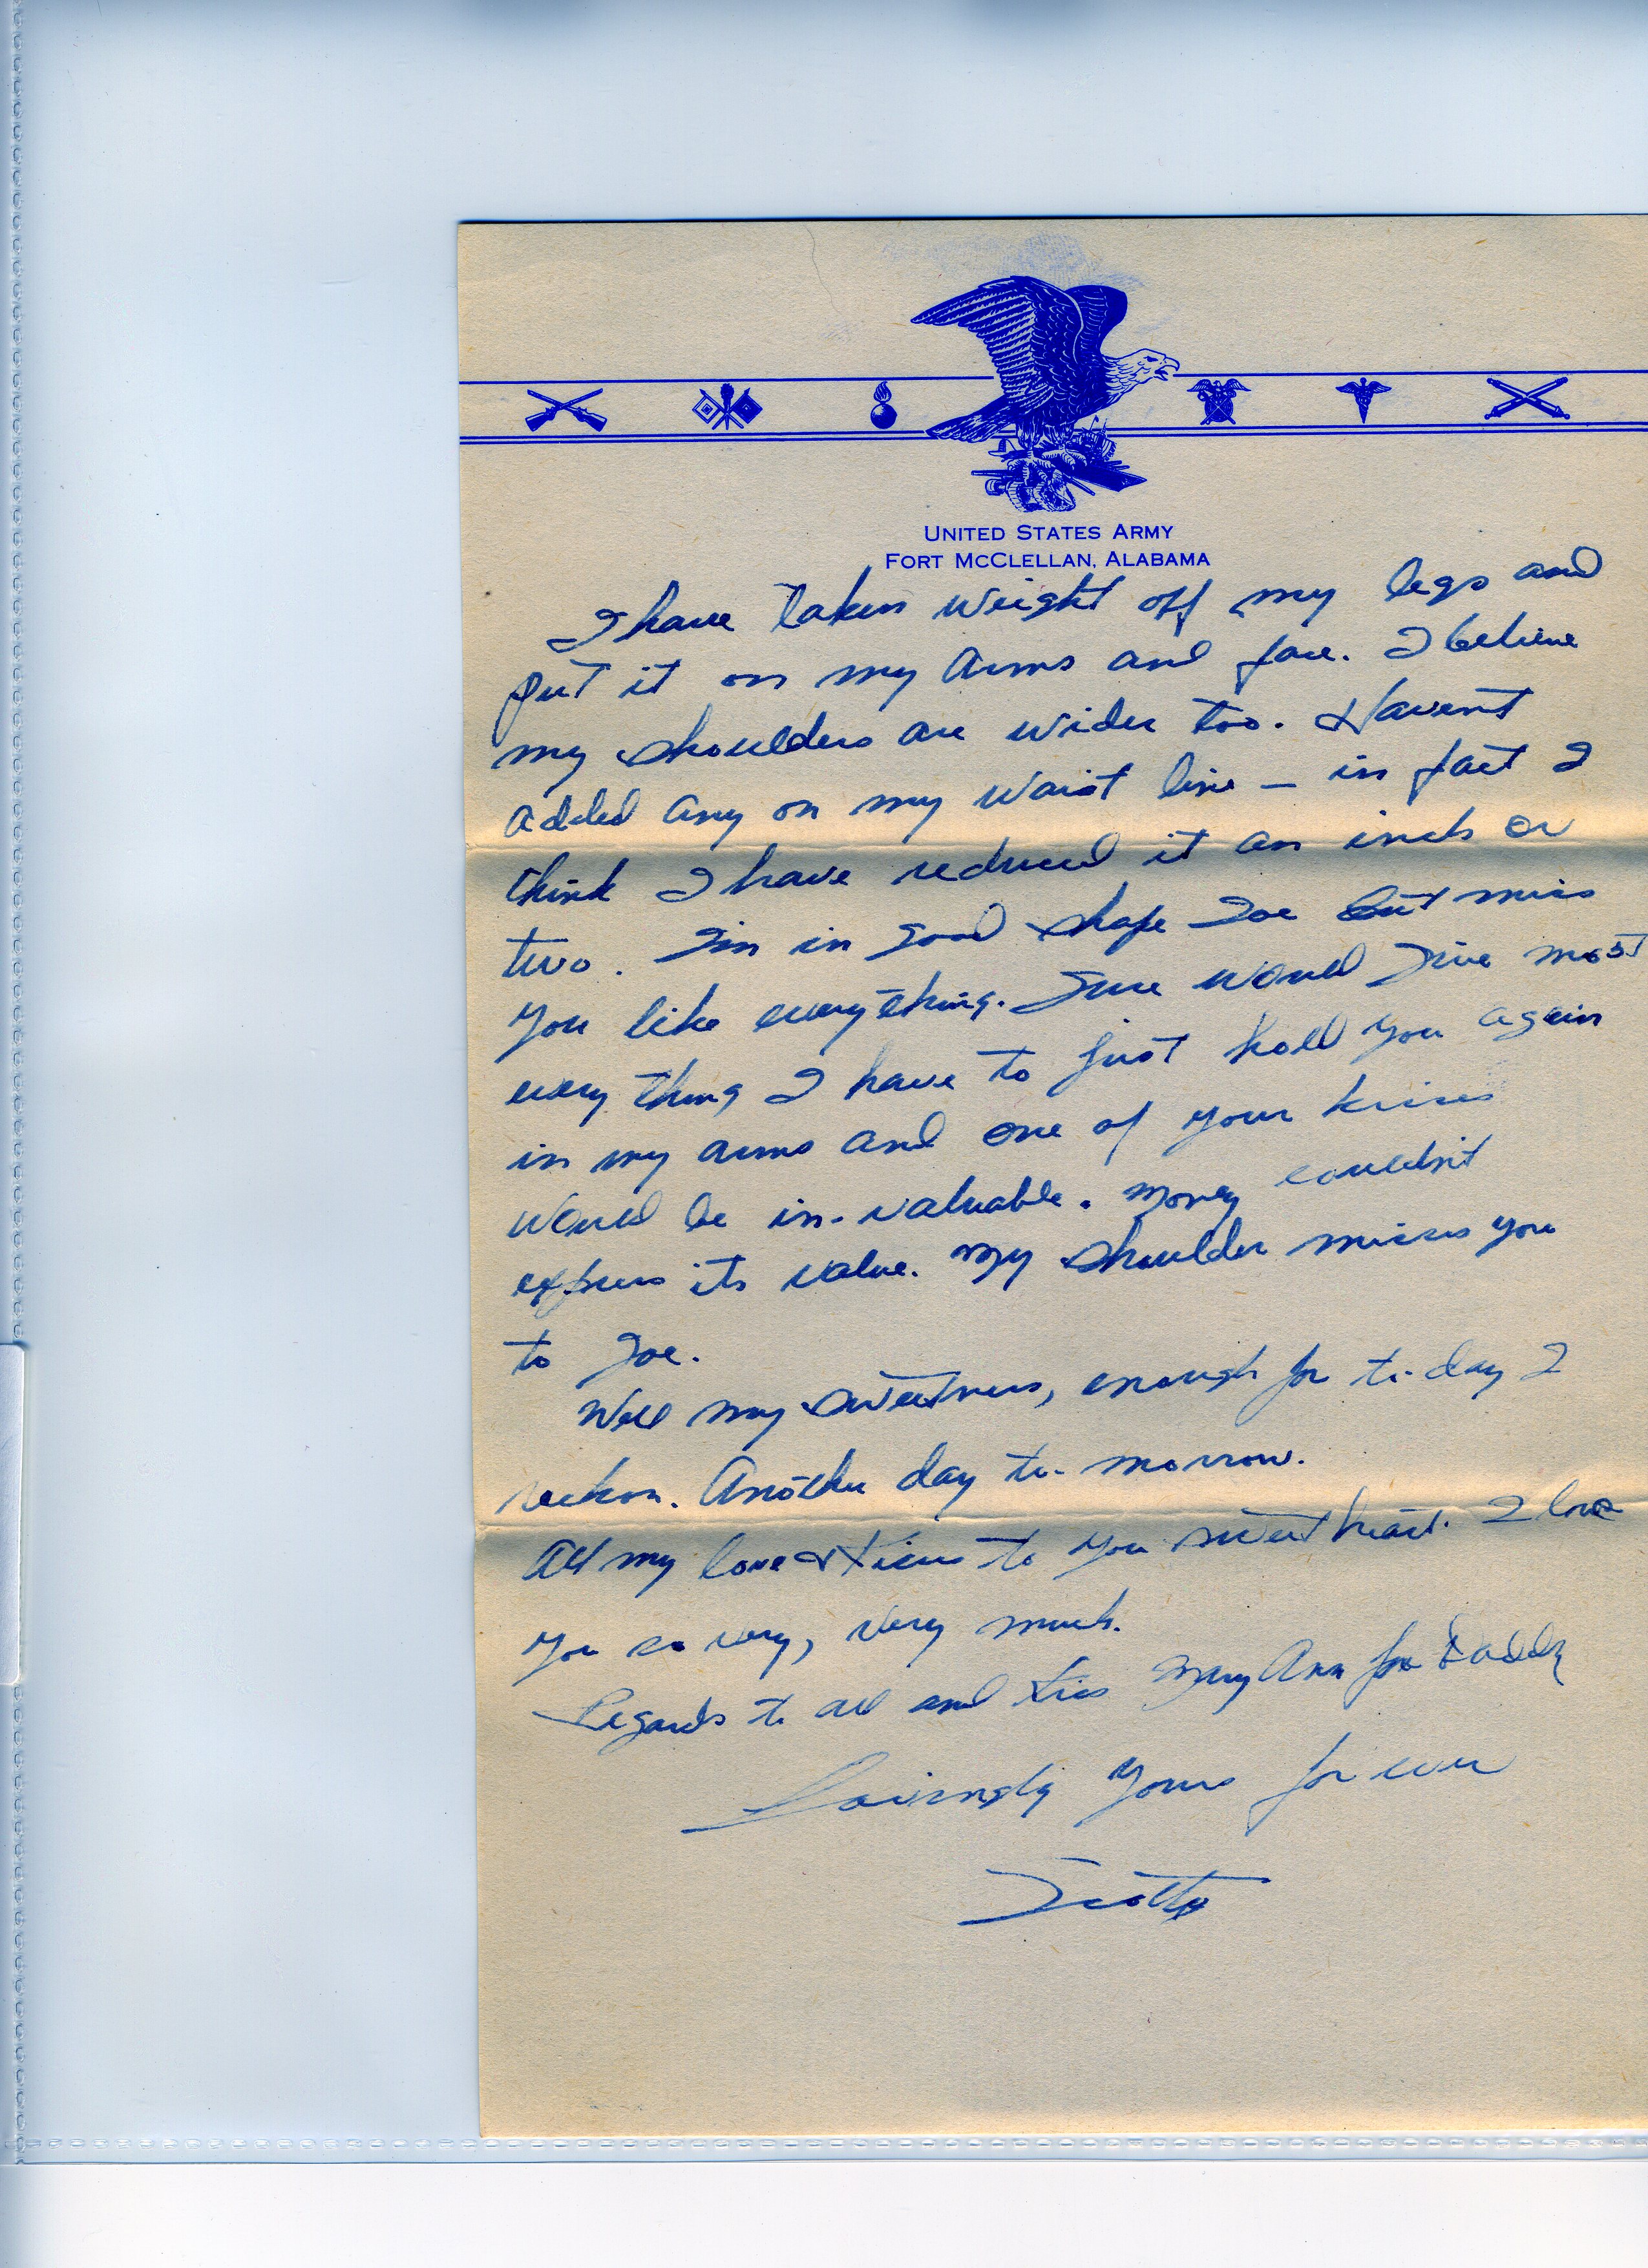 UNITED STATES ARMY
FORT MCCLELLAN, ALABAMA
I have taken weight off my legs and
put it on my arms and face. I believe
my shoulders are wider too. Haven't
added any on my waist line – in fact I
think I have reduced it an inch or
two. I'm in good shape Zoe but miss
you like everything. Sure would give most
every thing I have to just hold you again
in my arms and one of your kisses
would be in-valuable. Money couldn't
express its value. My shoulder misses you
to Zoe.
Well my sweetness, enough for to-day I
reckon. Another day to-morrow.
All my love & kisses to you sweetheart. I love
you so very, very much.
Regards to all and kiss Mary Ann for Daddy
Lovingly yours for ever
Scotty